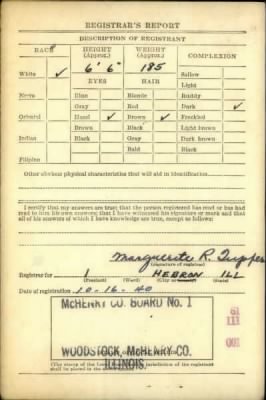 REGISTRAR'S REPORT
DESCRIPTION OF REGISTRANT
RACE HEIGHT (Approx.) WEIGHT (Approx.) COMPLEXION
White ✓ 6' 6" 185 Sallow
EYES HAIR Light
Negro Blue Blonde Ruddy
Gray Red Dark ✓
Oriental Hazel ✓ Brown ✓ Freckled
Brown Black Light brown
Indian Black Gray Dark brown
Bald Black
Filipino
Other obvious physical characteristics that will aid in identification
I certify that my answers are true; that the person registered has read or has had
read to him his own answers; that I have witnessed his signature or mark and that
all of his answers of which I have knowledge are true, except as follows:
Marguerite R.
(Signature of registrar)
Registrar for 1 HEBRON ILL
(Precinct) (Ward) (City or County) (State)
Date of registration 10-16-40
McHENRY CO. BOARD No. 1
61
111
001
WOODSTOCK, McHENRY CO.
ILLINOIS
(The stamp of the Local Board having jurisdiction of the registrant
shall be placed in the above space.)